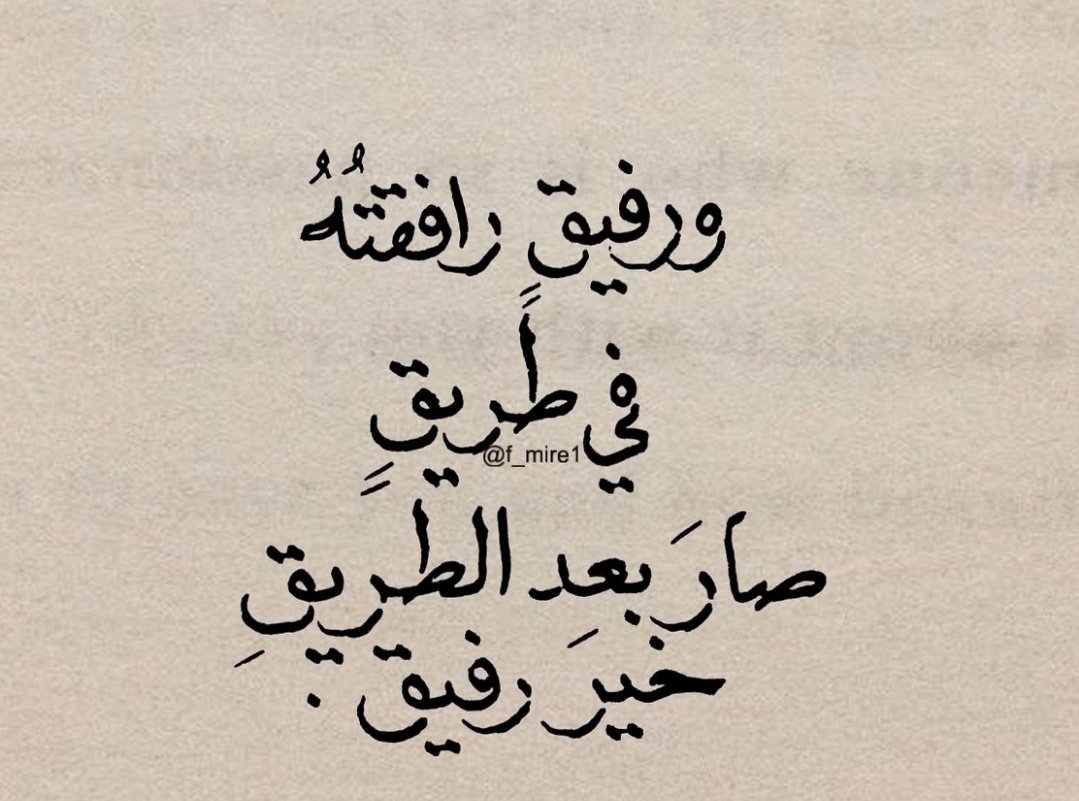 ورفيقٍ رافقتُهُ
في طريقٍ
@f_mire1
صارَ بعد الطريقِ
خيرَ رفيق .